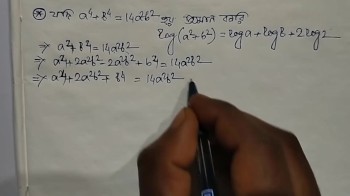 ⊛ যদি a⁴+b⁴=14a²b² হয় প্রমাণ করো
log(a²+b²)=loga+logb+2log2
⇒ a⁴+b⁴=14a²b²
⇒ a⁴+2a²b²-2a²b²+b⁴=14a²b²
⇒ a⁴+2a²b²+b⁴ =14a²b²